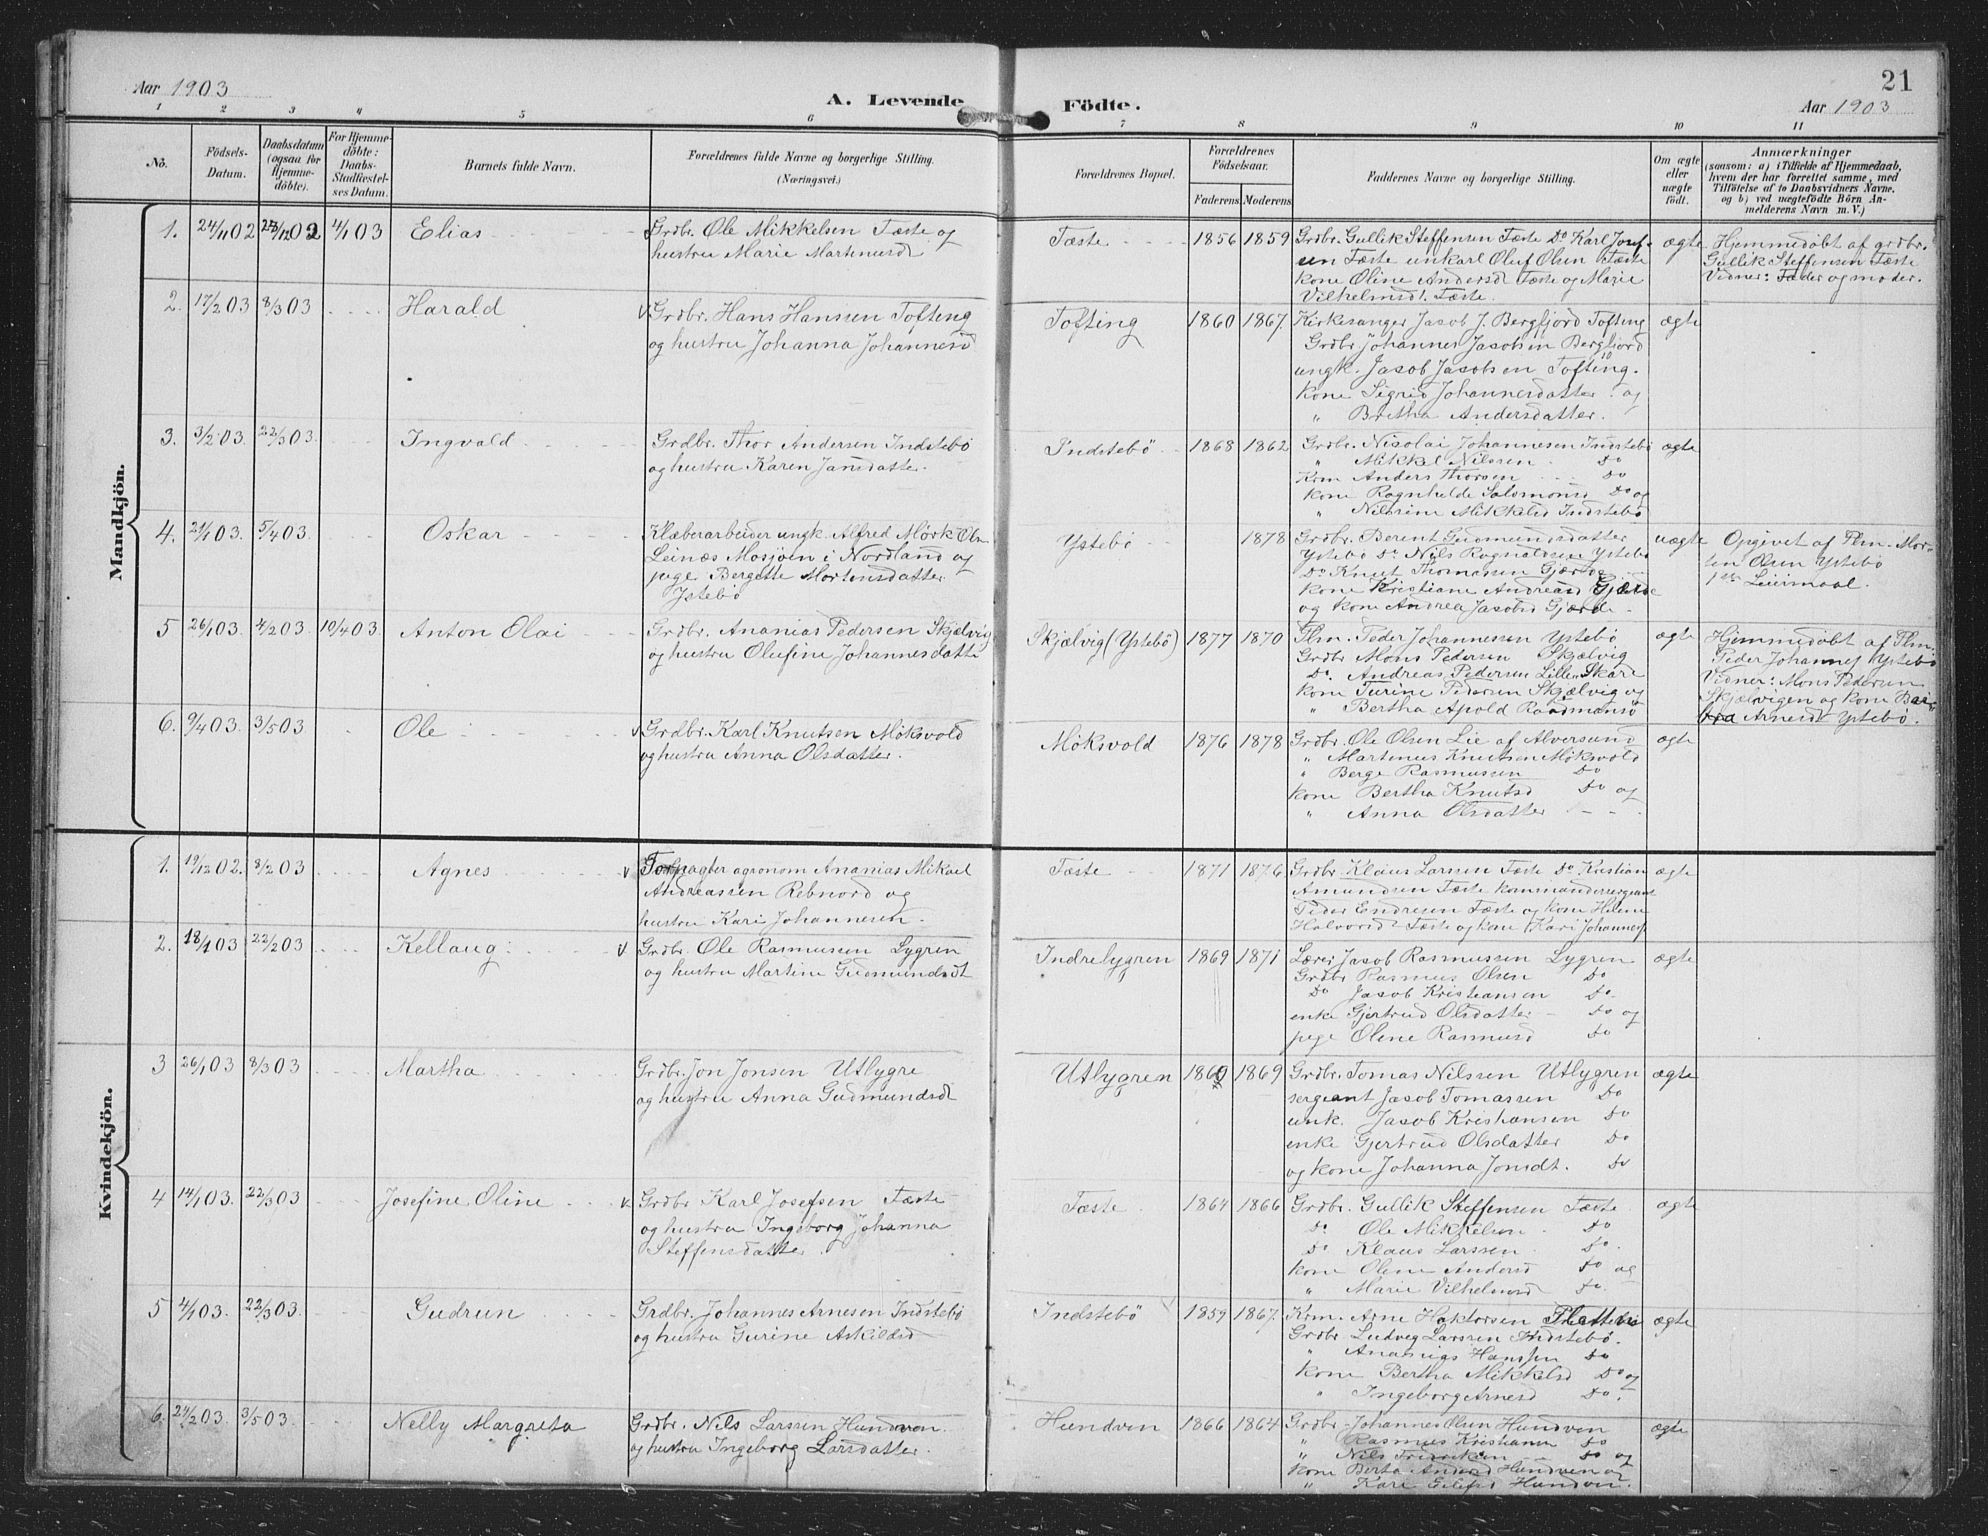 Aar 1903
A. Levende Födte.
21
Aar 1903
1 2 3 4 5 6 7 8 9 10 11
No.
Födsels-Datum.
Daabsdatum (ogsaa for Hjemmedöbte).
For Hjemmedöbte: Daabs-Stadfæstelses Datum.
Barnets fulde Navn.
Forældrenes fulde Navne og borgerlige Stilling.
(Næringsvei.)
Forældrenes Bopæl.
Forældrenes Födselsaar.
Faderens Moderens
Faddernes Navne og borgerlige Stilling.
Om ægte eller uægte födt.
Anmærkninger
(saasom: a) i Tilfælde af Hjemmedaab, hvem der har forrettet samme, med Tilföielse af to Daabsvidners Navne, og b) ved uægtefödte Börn Anmelderens Navn m. V.)
Mandkjön.
1. 24/11 02 28/12 02 4/1 03 Elias
Grdbr. Ole Mikkelsen Tæste og
hustru Marie Martinusd
Tæste 1856 1859
Grdbr. Gullik Steffensen Tæste Do Karl Josef-
sen Tæste unkarl Oluf Olsen Tæste
kone Oline Andersd Tæste og Marie
Vilhelmsd. Tæste.
ægte
Hjemmedøbt af grdbr.
Gullik Steffensen Tæste
Vidner: Fader og moder.
2. 17/2 03 8/3 03 Harald
Grdbr. Hans Hanssen Tofting
og hustru Johanna Johannesd
Tofting 1860 1867.
Kirkesanger Jacob J. Bergfjord Tofting
Grdbr Johannes Jacobsen Bergfjord
ungk. Jacob Jacobsen Tofting.
kone Sigrid Johannesdatter og
" Bertha Andersdatter.
ægte
3. 3/2 03. 22/3 03. Ingvald
Grdbr. Thor Andersen Indstebö
og hustru Karen Jansdatter.
Indstebö 1868 1862
Grdbr. Nicolai Johannesen Indstebö
" Mikkel Nilssen Do
Kom Anders Thorsen Do
kone Ragnhilde Salomonsd Do og
" Nilsine Mikkelsd Indstebö
ægte
4. 21/1 03. 5/4 03. Oskar
Klæberarbeider ungk. Alfred Mörk Ols
Leinæs Mosjøen i Nordland og
pige Bergitte Mortensdatter
Ystebö
Ystebö 1878
Grdbr. Berent Gudmundsdatter
Ystebö Do Nils Ragnaldsen Ystebö
Do Knut Thomassen Gjærde
kone Kristiane Andreasd Gjærde
og kone Andrea Jacobsd Gjærde.
uægte
Opgivet af Flm. Mor-
ten Olsen Ystebö
1ste Leiermaal.
5 26/1 03. 4/2 03. 10/4 03. Anton Olai
Grdbr. Ananias Pedersen Skjælvig
og hustru Olufine Johannesdatter
Skjælvig (Ystebö) 1877 1870
Flm. Peder Johannessen Ystebö
Grdbr Mons Pedersen Skjælvig
Do. Andreas Pedersen Lille Skare
kone Turine Pedersen Skjælvig og
" Bertha Apold Raadmansö
ægte
Hjemmedöbt af Flm.
Peder Johannes Ystebö
Vidner: Mons Pedersen
Skjælvigen og kone Bar-
bra Arnesdt Ystebö.
6. 9/4 03. 3/5 03. Ole
Grdbr. Karl Knutsen Möksvold
og hustru Anna Olsdatter.
Möksvold 1876 1878
Grdbr. Ole Olsen Lie af Alversund
" Martinus Knutsen Möksvold
" Berge Rasmussen Do
kone Bertha Knutsd Do og
" Anna Olsdatter
ægte
Kvindekjön.
1. 19/12 02. 8/2 03 Agnes
Forpagter agronom Ananias Mikael
Andreassen Rebnord og
hustru Kari Johannesen.
Tæste 1871 1876
Grdbr. Klaus Larssen Tæste Do Kristian
Amundsen Tæste kommandersergeant
Peder Endresen Tæste og kone Helene
Halvorsd Tæste og kone Kari Johannes
ægte
2. 18/1 03 22/2 03 Kellaug
Grdbr. Ole Rasmussen Lygren
og hustru Martine Gudmundsdt
Indrelygren 1869 1871
Lærer Jacob Rasmussen Lygren
Grdbr Rasmus Olsen Do
Do Jacob Kristiansen Do
enke Gjertrud Olsdatter Do og
pige Oline Rasmusd Do
ægte
3 26/1 03 8/3 03 Martha
Grdbr. Jon Jonsen Utlygre
og hustru Anna Gudmundsdt
Utlygren 1860 1869
Grdbr. Tomas Nilssen Utlygren
sergeant Jacob Tomassen Do
unk. Jacob Kristiansen Do
enke Gjertrud Olsdatter Do
og kone Johanna Jonsdt. Do
ægte
4 14/1 03. 22/3 03 Josefine Oline
Grdbr Karl Josefsen Tæste
og hustru Ingeborg Johanna
Steffensdatter.
Tæste 1864 1866
Grdbr. Gullik Steffensen Tæste
Do. Ole Mikkelsen Do
Do Klaus Larssen Do
kone Oline Andersd Do og
" Marie Vilhelmsd Do.
ægte
5 4/1 03. 22/3 03. Gudrun
Grdbr. Johannes Arnesen Indstebö
og hustru Gurine Askildsd
Indstebö 1859 1867.
Kom. Arne Haktorsen
Grdbr Ludvig Larssen Indstebö.
" Ananias Hanssen Do
kone Bertha Mikkelsd Do og
" Ingeborg Arnesd Do.
ægte
6. 21/2 03. 3/5 03. Nelly Margreta
Grdbr. Nils Larssen Hundven
og hustru Ingeborg Larsdatter.
Hundven 1866 1864
Grdbr Johannes Olsen Hundven
" Rasmus Kristiansen Do
" Nils Do og
kone Berta Andersd Hundven og
" Kari Hundven.
ægte